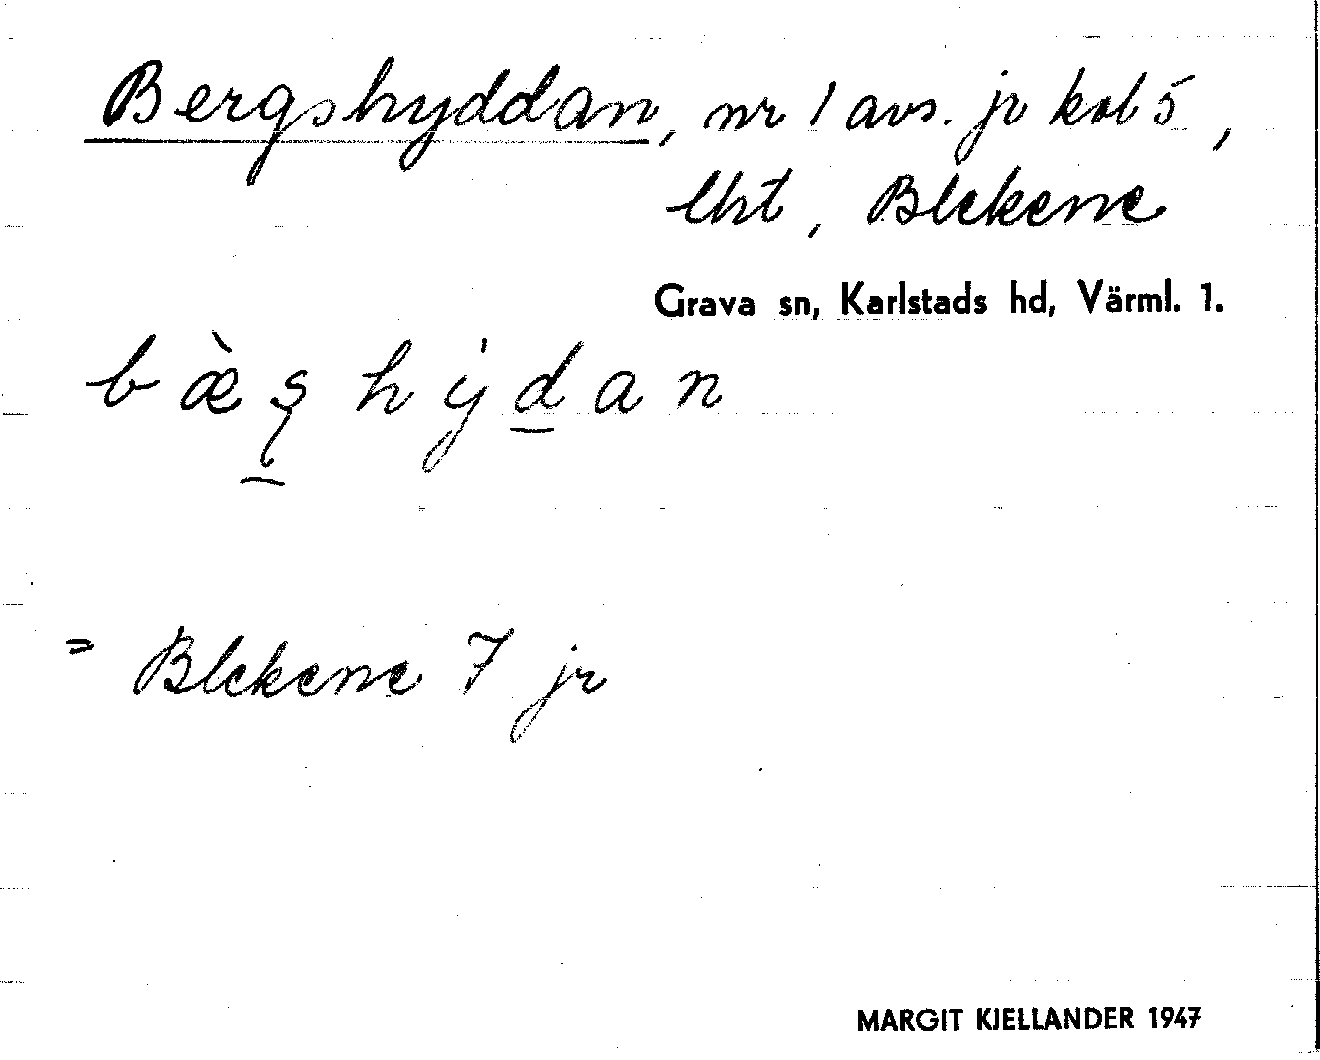 Bergshyddan, nr 1 avs. jr kol 5,
lht, Blekene
Grava sn, Karlstads hd, Värml. 1.
bæ̀ʂ hýdan
= Blekene 7 jr
MARGIT KJELLANDER 1947